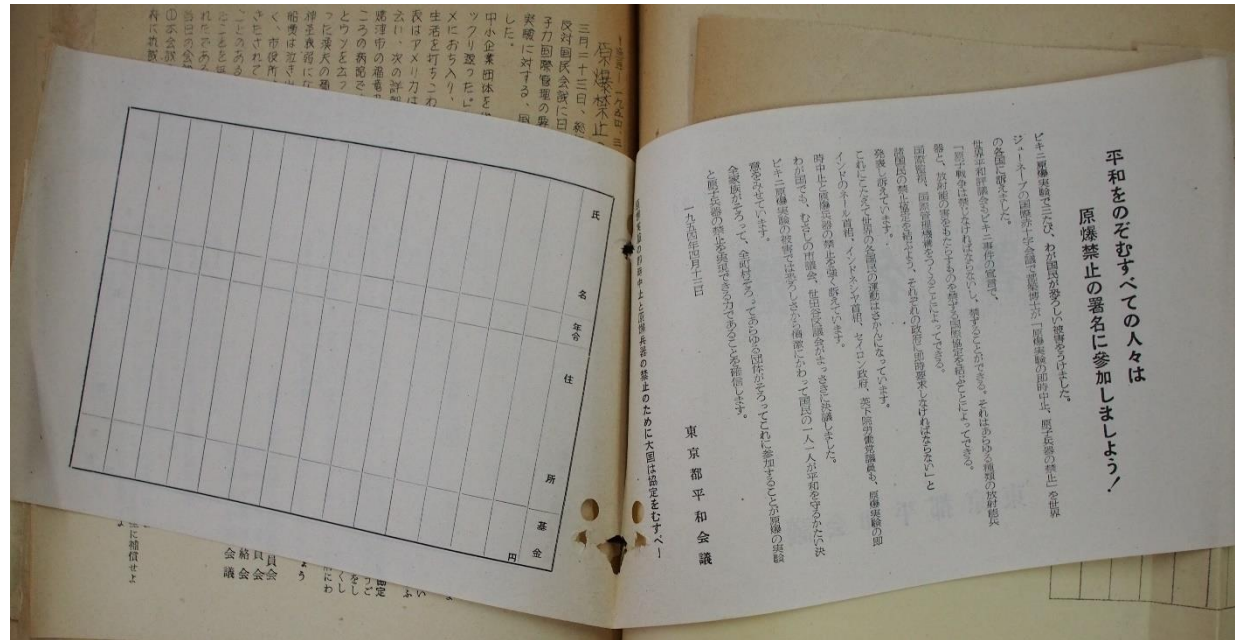 平和をのぞむすべての人々は
原爆禁止の署名に参加しましよう!
ビキニ原爆実験で三たび、わが国民が恐ろしい被害をうけました。
ジューネーブの国際赤十字会議で都築博士が「原爆実験の即時中止、原子兵器の禁止」を世界
の各国に訴えました。
世界平和評議会もビキニ事件の宣言で、
「原子戦争は禁じなければならないし、禁ずることができる。それはあらゆる種類の放射能兵
器と、放射能の害をもたらすものを禁ずる国際協定を結ぶことによってできる。
国際監視、国際管理機構をつくることによってできる。
諸国民の禁止協定を結ぶよう、それぞれの政府に即時要求しなければならない」と
発表し訴えています。
これにこたえて世界の各国民の運動はさかんになっています。
インドのネール首相、インドネシヤ首相、セイロン政府、英下院労働党議員も、原爆実験の即
時中止と原爆兵器の禁止を強く訴えています。
わが国でも、むさしの市議会、世田谷区議会がまっさきに決議しました。
ビキニ原爆実験の被害では恐ろしさから憤激にかわって国民の一人一人が平和を守るかたい決
意をみせています。
全家族がそろって、全町村そろってあらゆる団体がそろってこれに参加することが原爆の実験
と原子兵器の禁止を実現できる力であることを確信します。
一九五四年四月十三日
東京都平和会議
原爆実験の即時中止と原爆兵器の禁止のために大国は協定をむすべー
氏名
年令
住所
基金
円
原爆禁止
三月二十三日、
反対国民会議に日
子力国際管理の
実験に対する、
した。
中小企業団体を
ックリ返った
メにおち入り、
生活を打ちこわ
はアメリカは
焼津市の福竜
に補償せよ
員会
員会
絡会
会議